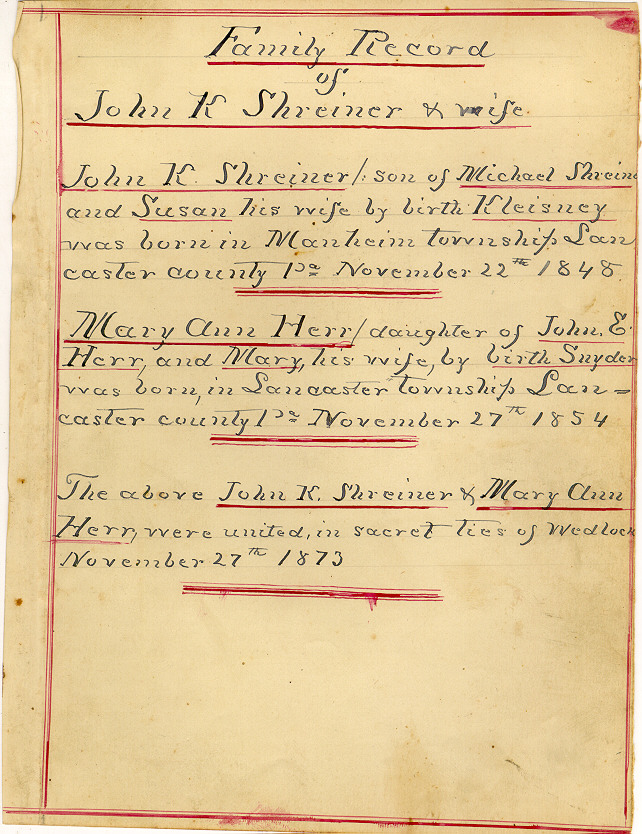 Family Record
of
John K Shreiner & wife.
John K. Shreiner/ son of Michael Shrein
and Susan his wife by birth Kleisney
was born in Manheim township Lan
caster county Pa November 22th 1848
Mary Ann Herr/ daughter of John. E.
Herr, and Mary, his wife, by birth Snyder
was born, in Lancaster township Lan=
caster county Pa November 27th 1854
The above John K. Shreiner & Mary Ann
Herr, were united, in sacret ties of Wedlock
November 27th 1873